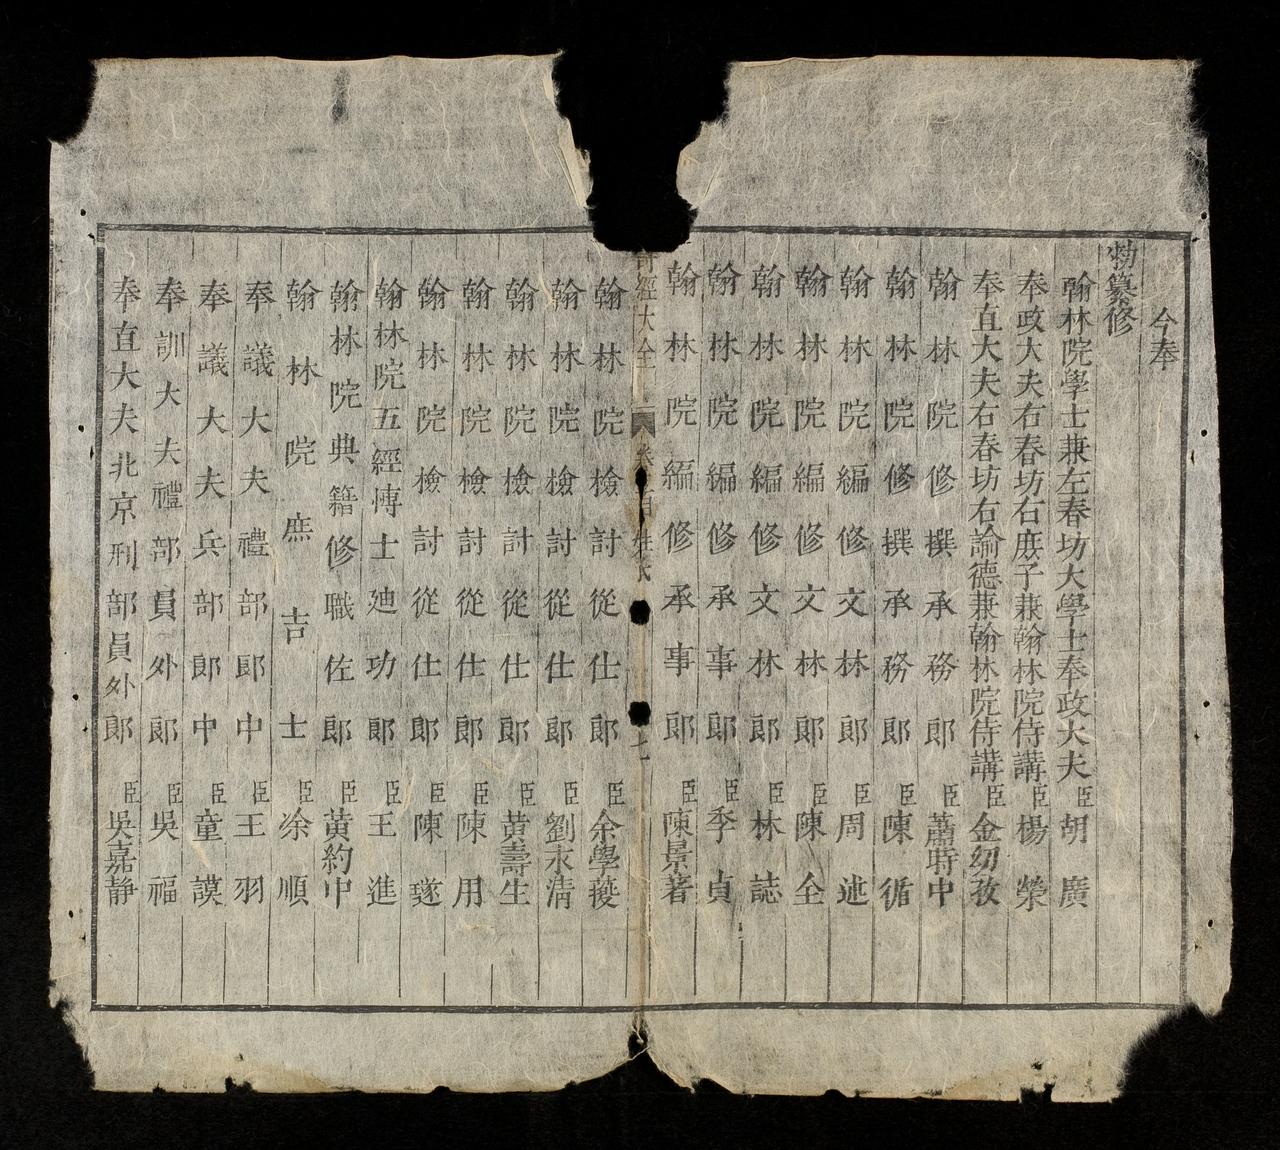 今奉
勑纂修
翰林院學士兼左春坊大學士奉政大夫臣胡廣
奉政大夫右春坊右庶子兼翰林院侍講臣楊榮
奉直大夫右春坊右諭德兼翰林院侍講臣金幼孜
翰林院修撰承務郎臣蕭時中
翰林院修撰承務郎臣陳循
翰林院編修文林郎臣周述
翰林院編修文林郎臣陳全
翰林院編修文林郎臣林誌
翰林院編修承事郎臣季貞
翰林院編修承事郎臣陳景著
詩經大全 卷首姓氏 七
翰林院檢討從仕郎臣余學夔
翰林院檢討從仕郎臣劉永清
翰林院檢討從仕郎臣黃壽生
翰林院檢討從仕郎臣陳用
翰林院檢討從仕郎臣陳璲
翰林院五經博士廸功郎臣王進
翰林院典籍修職佐郎臣黃約中
翰林院庶吉士臣涂順
奉議大夫禮部郎中臣王羽
奉議大夫兵部郎中臣童謨
奉訓大夫禮部員外郎臣吳福
奉直大夫北京刑部員外郎臣吳嘉靜